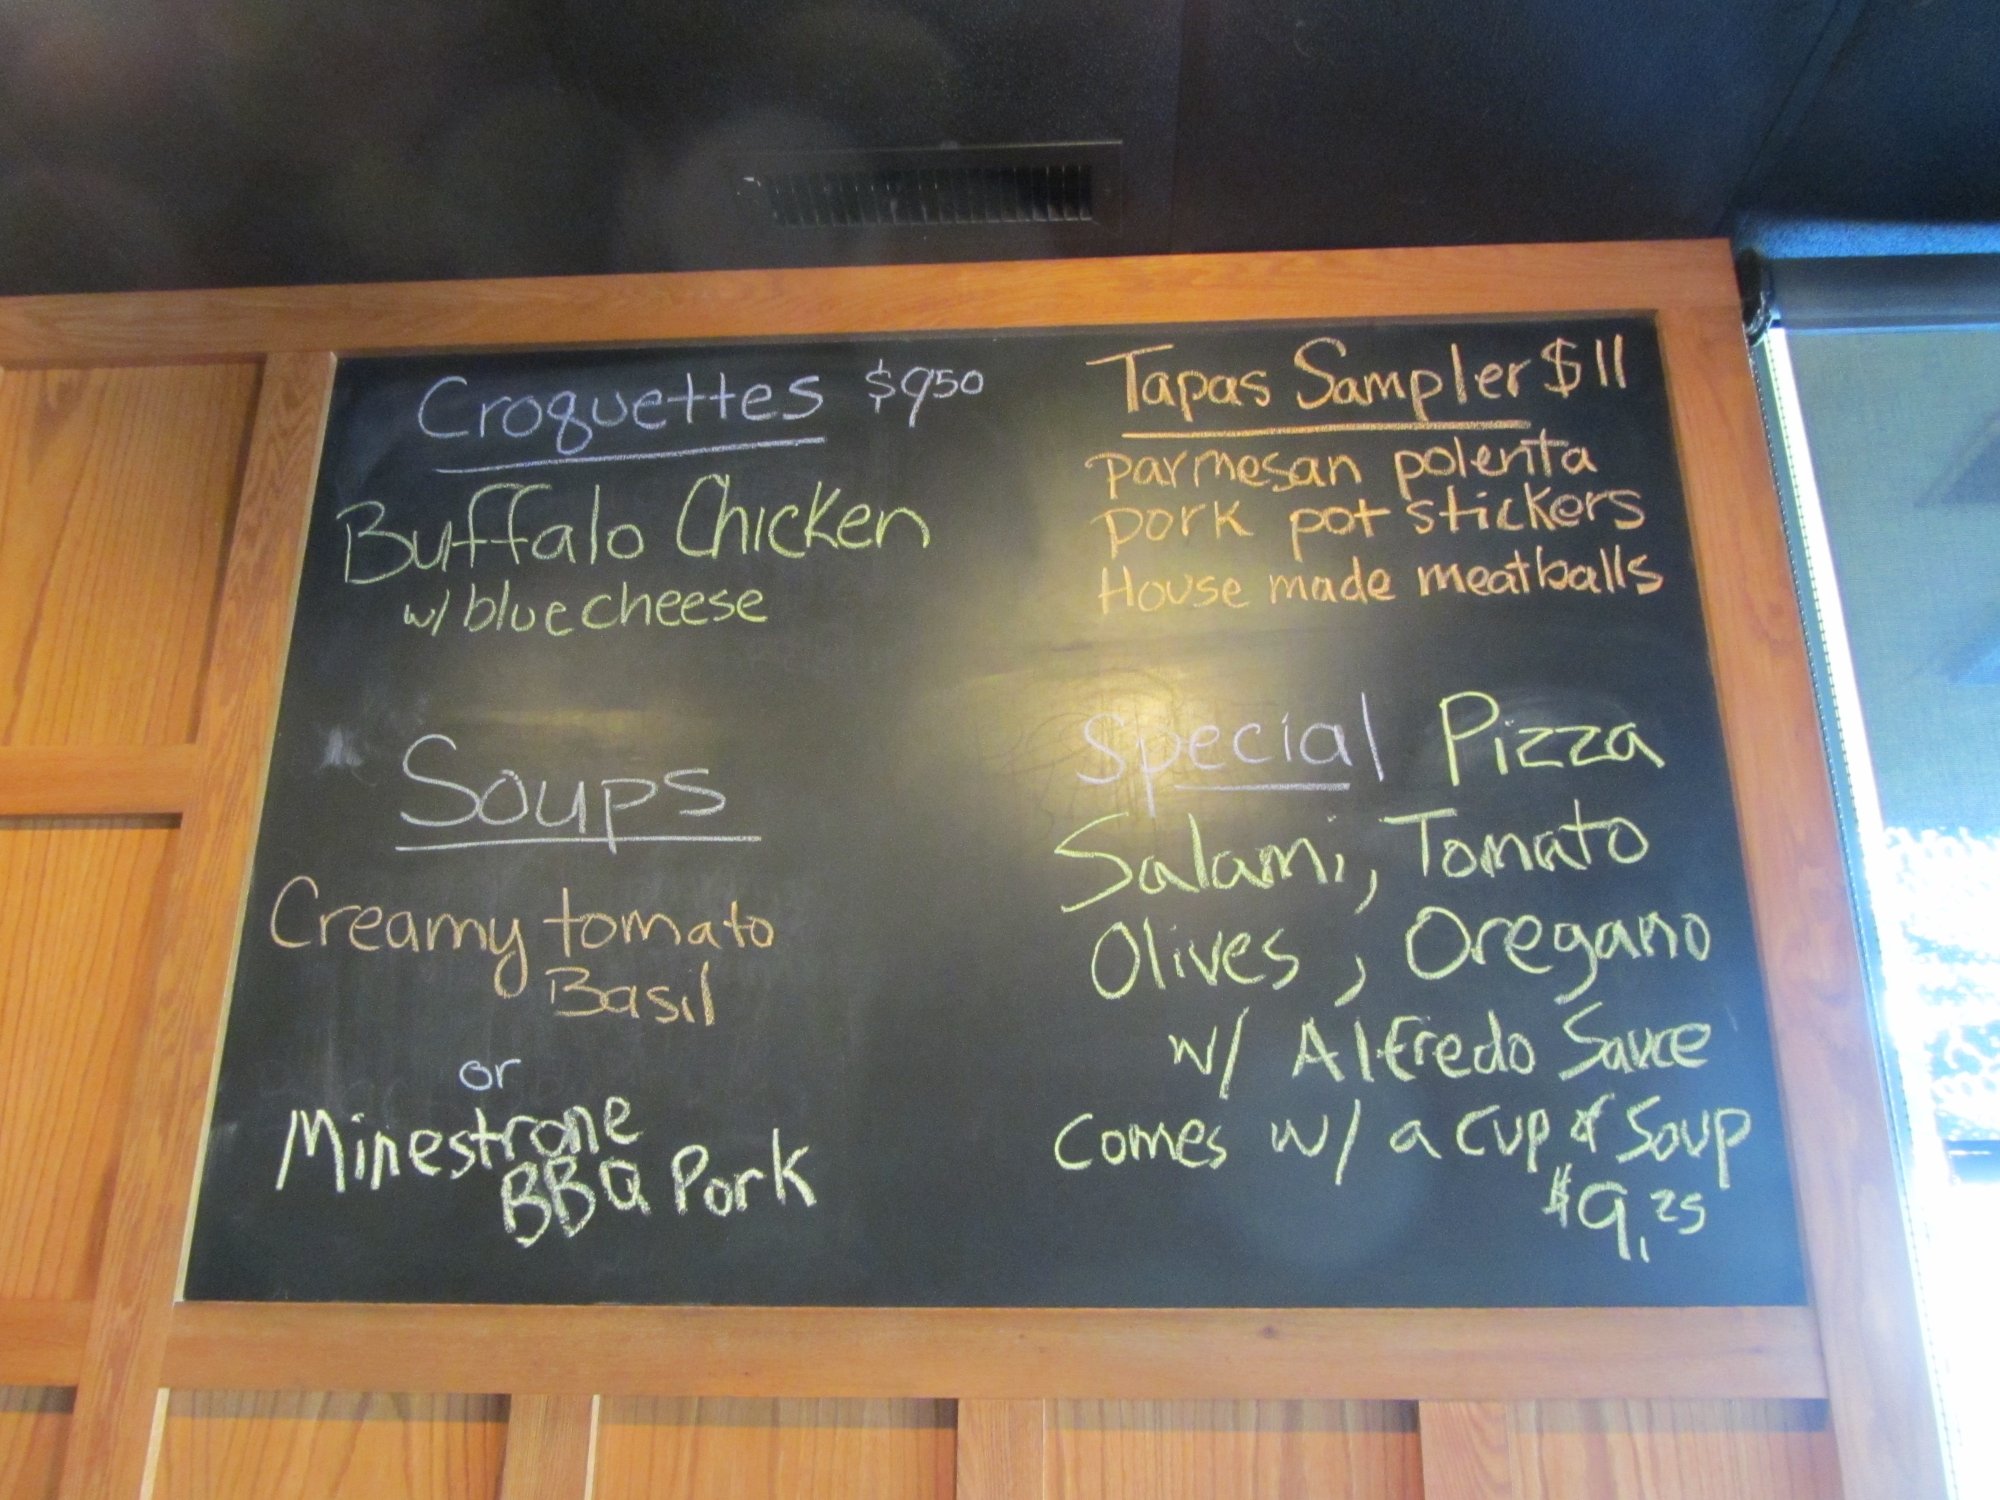 Croquettes $9.50
Buffalo Chicken
w/ blue cheese
Soups
Creamy tomato
Basil
or
Minestrone
BBQ Pork
Tapas Sampler $11
parmesan polenta
pork pot stickers
House made meatballs
Special Pizza
Salami, Tomato
Olives, Oregano
w/ Alfredo Sauce
Comes w/ a cup of Soup
$9.25